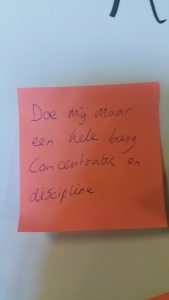 Doe mij maar
een hele berg
Concentratie en
discipline.